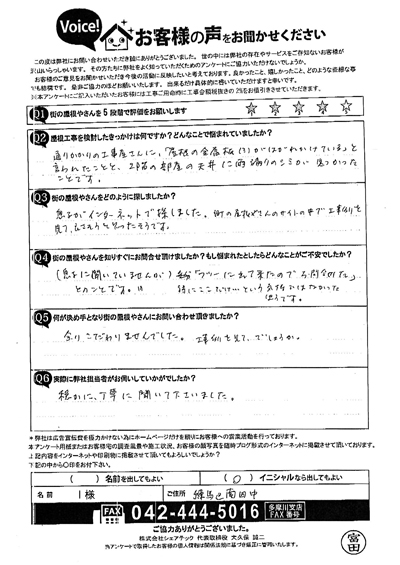 Voice!
お客様の声をお聞かせください
この度は弊社にお問い合わせいただき誠にありがとうございました。世の中には弊社の存在やサービスをご存知ないお客様が
Q1 街の屋根やさんを5段階で評価をお願いします
Q2 屋根工事を検討したきっかけは何ですか？どんなことで悩まれていましたか？
通りかかりの工事屋さんに、「屋根の金属板(?)がはがれかけている」と
言われたことと、2階の部屋の天井に雨漏りのシミが見つかった
ことです。
Q3 街の屋根やさんをどのように探しましたか？
息子がインターネットで探しました。街の屋根やさんのサイトの中で工事例を
見て、
Q4 街の屋根やさんを知りすぐにお問合せ頂けましたか？もし悩まれたとしたらどんなことがご不安でしたか？
(息子に聞いていませんが)
とのことです。
Q5 何が決め手となり街の屋根やさんにお問い合わせ頂きましたか？
余りこだわりませんでした。工事例を見て、でしょうか。
Q6 実際に弊社担当者がお伺いしていかがでしたか？
穏かに、丁寧に聞いて下さいました。
＊弊社は広告宣伝費を極力かけない為にホームページだけを頼りにお客様への営業活動を行っております。
＊アンケート用紙またはお客様宅の調査風景や施工状況、お客様の顔写真を随時ブログ形式のインターネットに掲載させて頂いております。
上記内容をインターネットや印刷物に掲載させて頂いてもよろしいでしょうか？
下記の中から○印をお付下さい。
( ) 名前を出してもよい ( ○ ) イニシャルなら出してもよい
名前 I 様 ご住所 練馬区南田中
FAX 042-444-5016 多摩川支店 FAX番号
ご協力ありがとうございました。
株式会社シェアテック 代表取締役 大久保 誠二
当アンケートで取得したお客様の個人情報は関係法規に基づき厳正に管理いたします。
富田